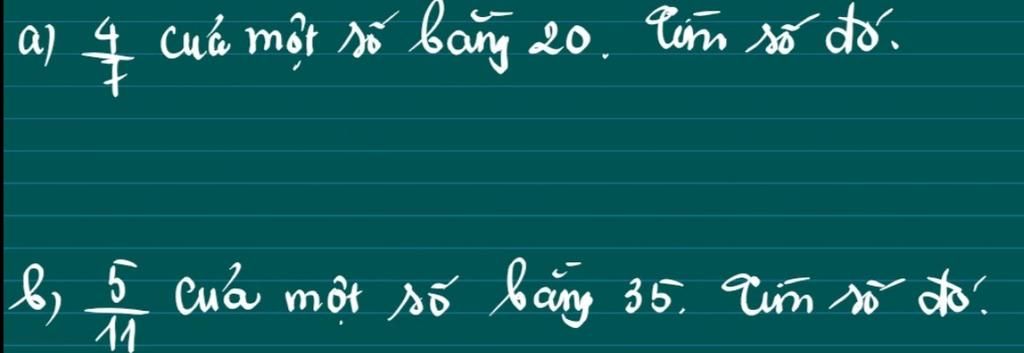 a) 4/7 của một số bằng 20. Tìm số đó.
b) 5/11 của một số bằng 35. Tìm số đó.